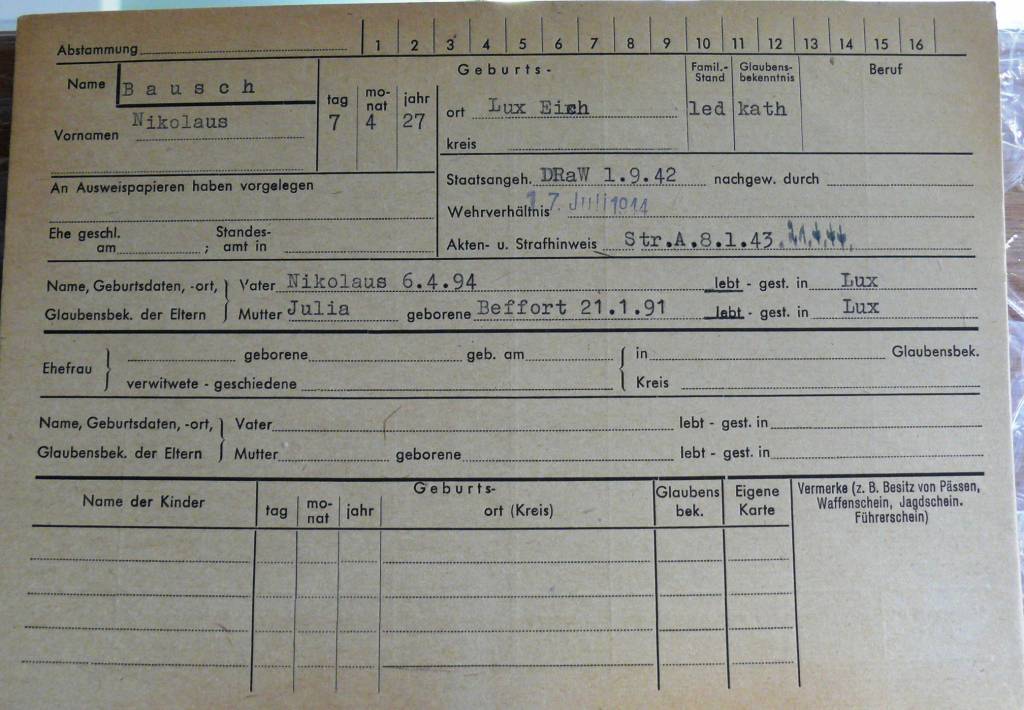 Abstammung 1 2 3 4 5 6 7 8 9 10 11 12 13 14 15 16
Name Bausch Geburts- Famil.-Stand Glaubens-bekenntnis Beruf
tag mo-nat jahr
Vornamen Nikolaus 7 4 27 ort Lux Eich led kath
kreis
An Ausweispapieren haben vorgelegen Staatsangeh. DRaW 1.9.42 nachgew. durch
Wehrverhältnis 17. Juli 1944
Ehe geschl. am ; Standes-amt in Akten- u. Strafhinweis Str.A.8.1.43.
Name, Geburtsdaten, -ort, Vater Nikolaus 6.4.94 lebt - gest. in Lux
Glaubensbek. der Eltern Mutter Julia geborene Beffort 21.1.91 lebt - gest. in Lux
Ehefrau geborene geb. am in Glaubensbek.
verwitwete - geschiedene Kreis
Name, Geburtsdaten, -ort, Vater lebt - gest. in
Glaubensbek. der Eltern Mutter geborene lebt - gest. in
Name der Kinder Geburts- Glaubens bek. Eigene Karte Vermerke (z. B. Besitz von Pässen,
tag mo-nat jahr ort (Kreis) Waffenschein, Jagdschein.
Führerschein)